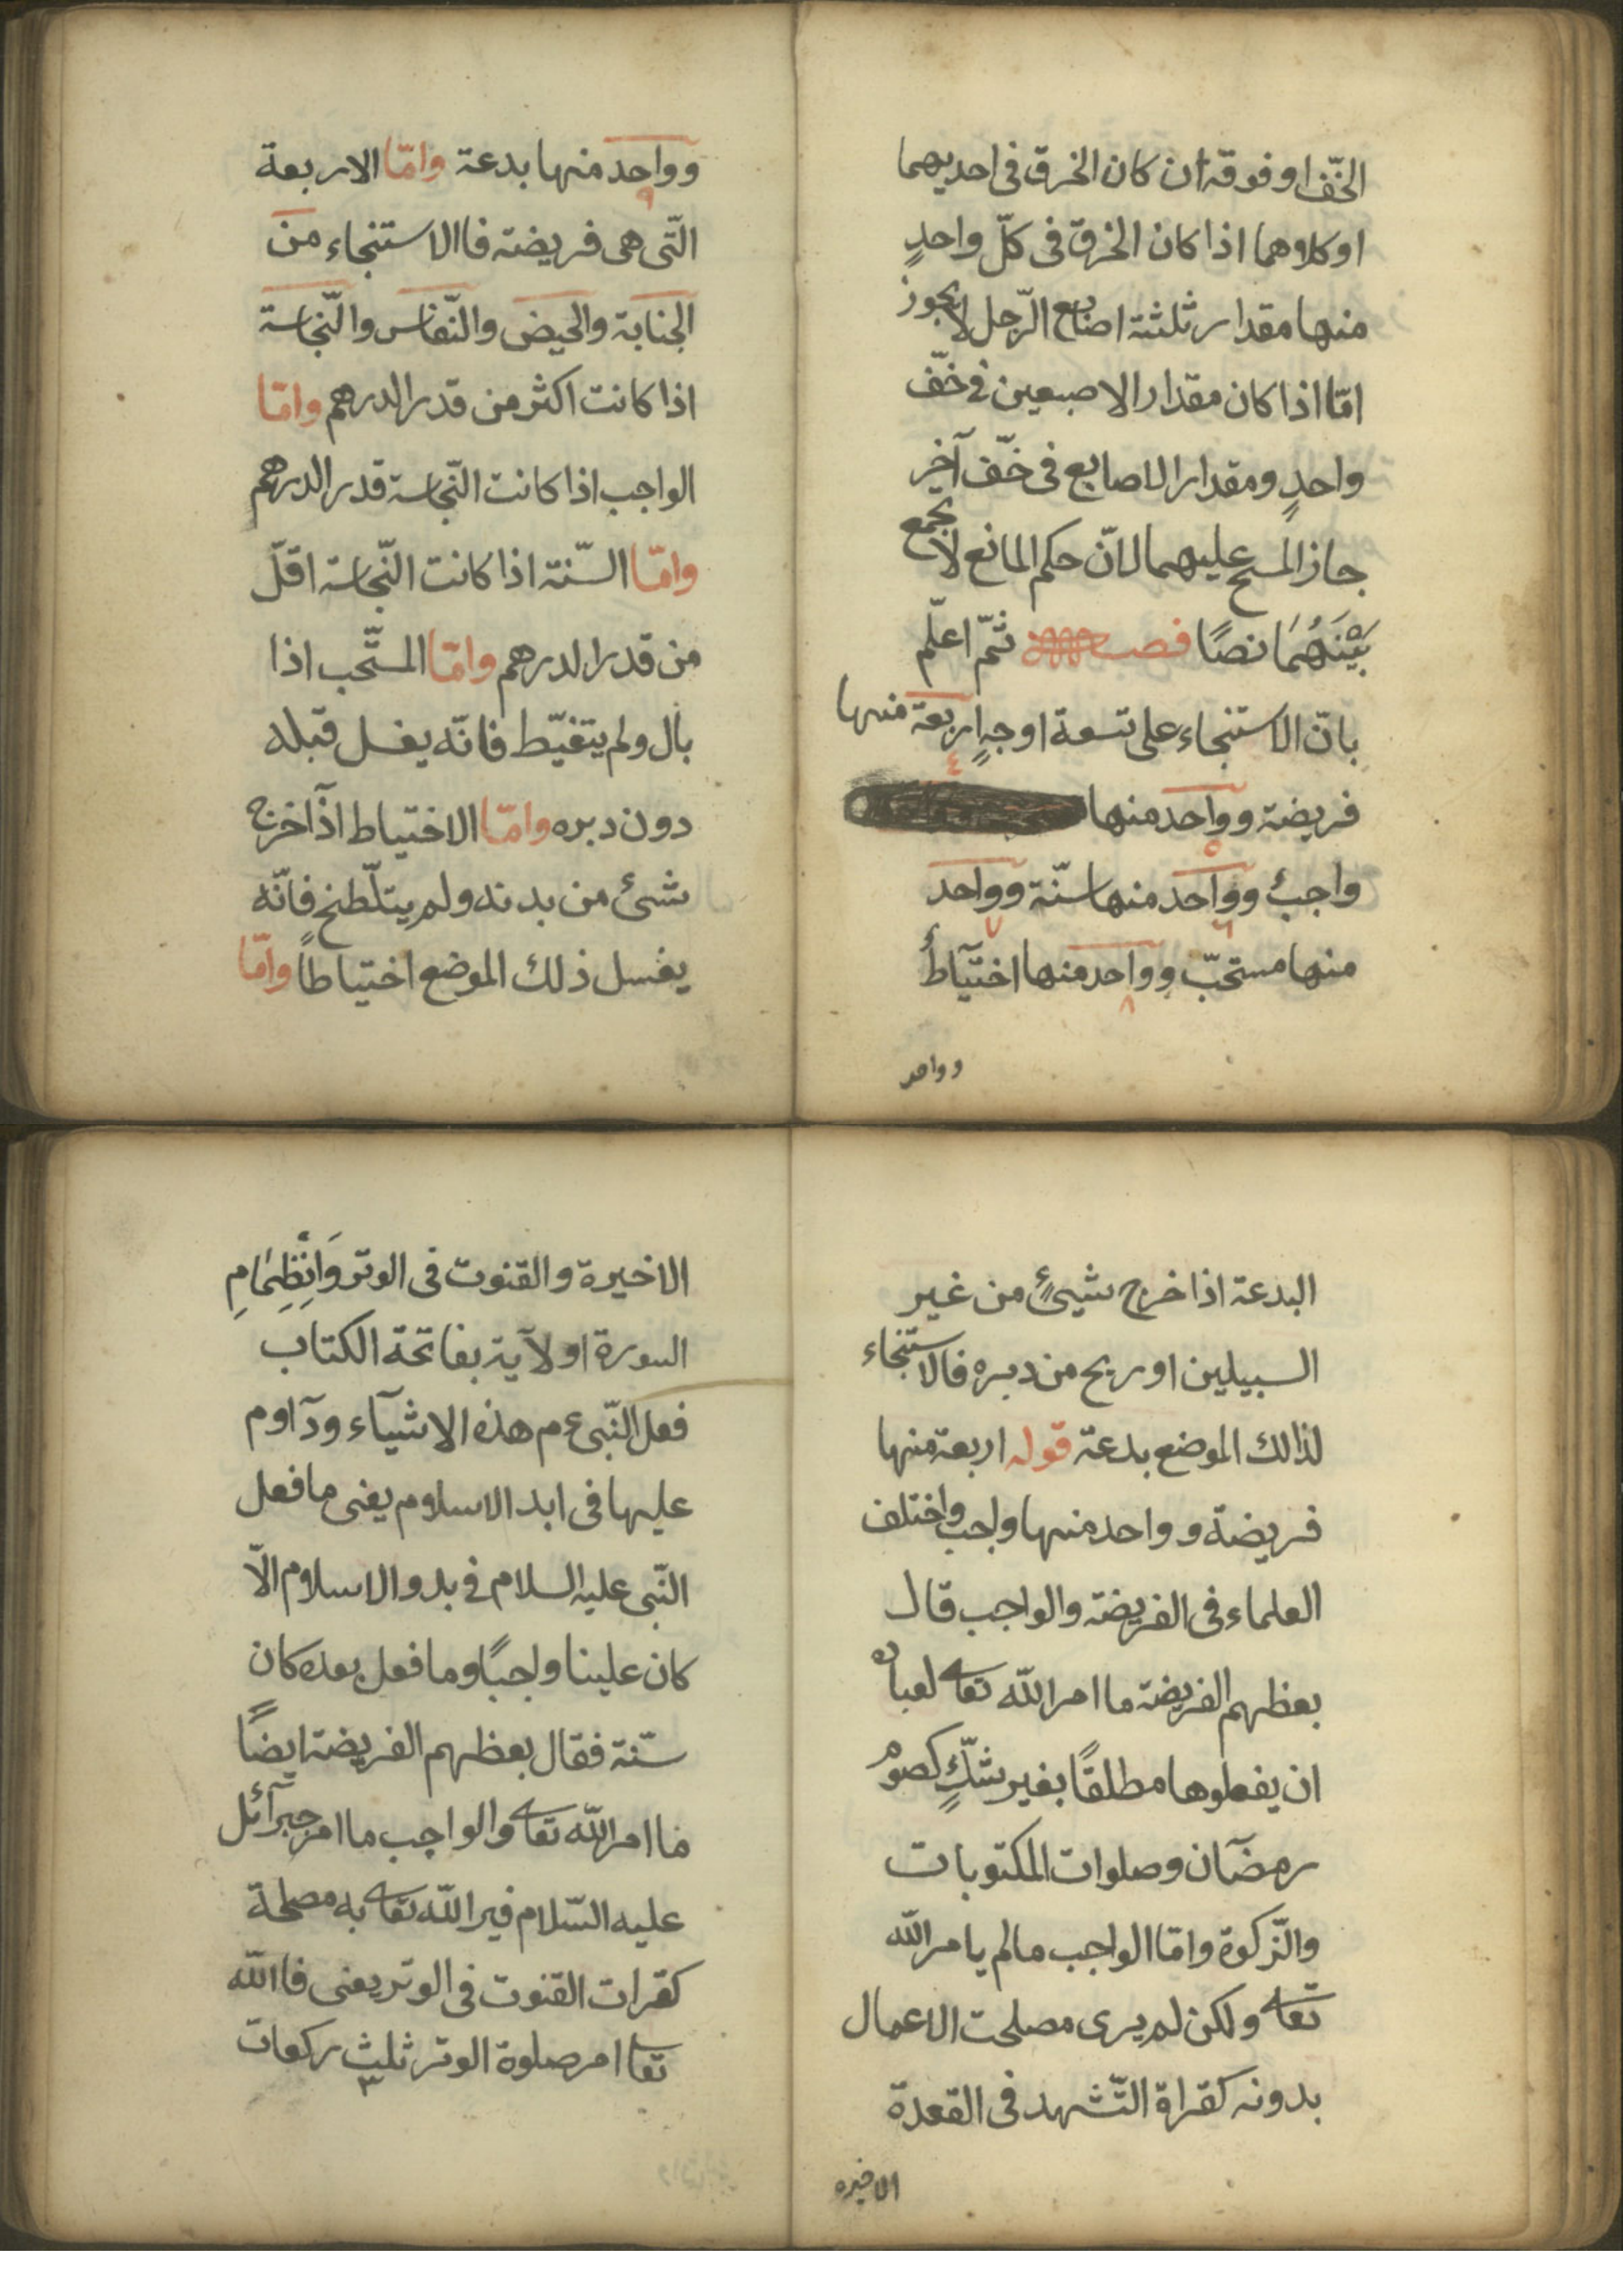 الخّف او فوقه ان كان الخرق فى احديهما
او كلاوهما اذا كان الخرق فى كلّ واحدٍ
منهما مقدار ثلثة اصابع الرّجل لا يجوز
امّا اذا كان مقدار الاصبعين فى خّف
واحدٍ ومقدار الاصابع فى خّف آخر
جاز المسح عليهما لانّ حكم المانع لا يجمع
بَيْنَهُمَا نصًا فصب ثمّ اعلم
بانّ الاستنجاء على تسعة اوجهٍ اربعة منها
٤
فريضة وواحد منها
٥
واجبٌ وواحد منها سنّة وواحد
٦ ٧
منها مستحبّ وواحد منها احتياطٌ
٨
وواحد
وواحد منها بدعة وامّا الاربعة
٩
الّتى هى فريضة فاالاستنجاء من
الجنابة والحيض والنّفاس والنّجاسة
اذا كانت اكثر من قدر الدرهم وامّا
الواجب اذا كانت النّجاسة قدر الدرهم
وامّا السّنة اذا كانت النّجاسة اقلّ
من قدر الدرهم وامّا المستّحب اذا
بال ولم يتغيّط فانّه يغسل قبله
دون دبره وامّا الاحتياط اذا خرج
شئ من بدنه ولم يتلّطخ فانّه
يغسل ذلك الموضع احتياطاً وامّا
البدعة اذا خرج شيئٍ من غير
السبيلين او ريح من دبره فالاستنجاء
لذالك الموضع بدعة قوله اربعة منها
فريضة وواحد منها واجب واختلف
العلماء فى الفريضة والواجب قال
بعظهم الفريضة ما امر اللّه تعا لعباده
ان يفعلوها مطلقًا بغير شكٍّ كصوم
رمضآن وصلوات المكتوبات
والزّكوة وامّا الواجب مالم يامر اللّه
تعا ولكن لم يرى مصلحت الاعمال
بدونه كقراة التّشهد فى القعدة
الاخيره
الاخيرة والقنوت فى الوتر وَانْظِمَامِ
السورة او لآية بفاتحة الكتاب
فعل النّبى عم هذه الاشيآء ودآاوم
عليها فى ابد الاسلاوم يعنى ما فعل
النّبى عليه السلام فى بدو الاسلاوم الّا
كان علينا واجبًا وما فعل بعده كان
سّنة فقال بعظهم الفريضة ايضًا
ما امر اللّه تعا والواجب ما امر جبرآئل
عليه السّلام فيرا اللّه تعا به مصلحة
كقرات القنوت فى الوتر يعنى فاالله
تعا امر صلوة الوتر ثلث ركعات
٣